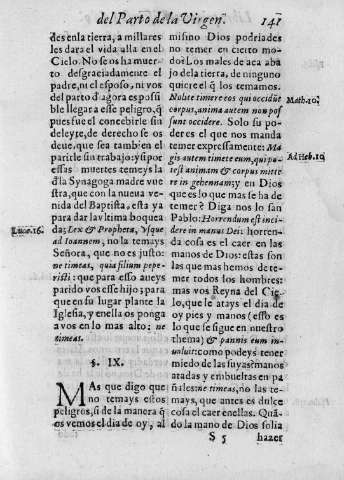 del Parto de la Virgen. 141
des en la tierra, a millares
les dara el vida alla en el
Cielo. No se os ha muer-
to desgraciadamente el
padre, ni el esposo, ni vos
del parto d̃ agora es possi-
ble llegar a este peligro, q̃
pues fue el concebirle sin
deleyte, de derecho se os
deue, que sea tambien el
parirle sin trabajo; y si por
essas muertes temeys la
d̃la Synagoga madre vue-
stra, que con la nueua ve-
nida del Baptista, esta ya
para dar la vltima boquea
da; Lex & Propheta, vsque
Lucæ. 16.
ad Ioannem, no la temays
Señora, que no es justo:
ne timeas, quia filium pepe-
risti: que para esso aueys
parido vos esse hijo; para
que en su lugar plante la
Iglesia, y en ella os ponga
a vos en lo mas alto: ne
timeas.
§. IX.
MAs que digo que
no temays estos
peligros, si de la manera q̃
os vemos el dia de oy, al
mismo Dios podriades
no temer en cierto mo-
do? Los males de aca aba-
jo de la tierra, de ninguno
quiere el q̃ los temamos.
Nolite timere eos qui occidũt
Math. 10.
corpus, animã autem non pos
sunt occidere. Solo su po-
der es el que nos manda
temer expressamente: Ma
gis autem timete eum, qui po-
Ad Heb. 10.
test animam & corpus mitte
re in gehennam; y en Dios
que es lo que mas se ha de
temer? Diga nos lo san
Pablo: Horrendum est inci-
dere in manus Dei: horren-
da cosa es el caer en las
manos de Dios: estas son
las que mas hemos de te-
mer todos los hombres:
mas vos Reyna del Cie-
lo, que le atays el dia de
oy pies y manos (esso es
lo que se sigue en nuestro
thema) & pannis eum in-
uoluit: como podeys tener
miedo de las suyas manos
atadas y embueltas en pa
ñales: ne timeas, no las te-
mays, que antes es dulce
cosa el caer en ellas. Quã-
do la mano de Dios solia
S 5 hazer